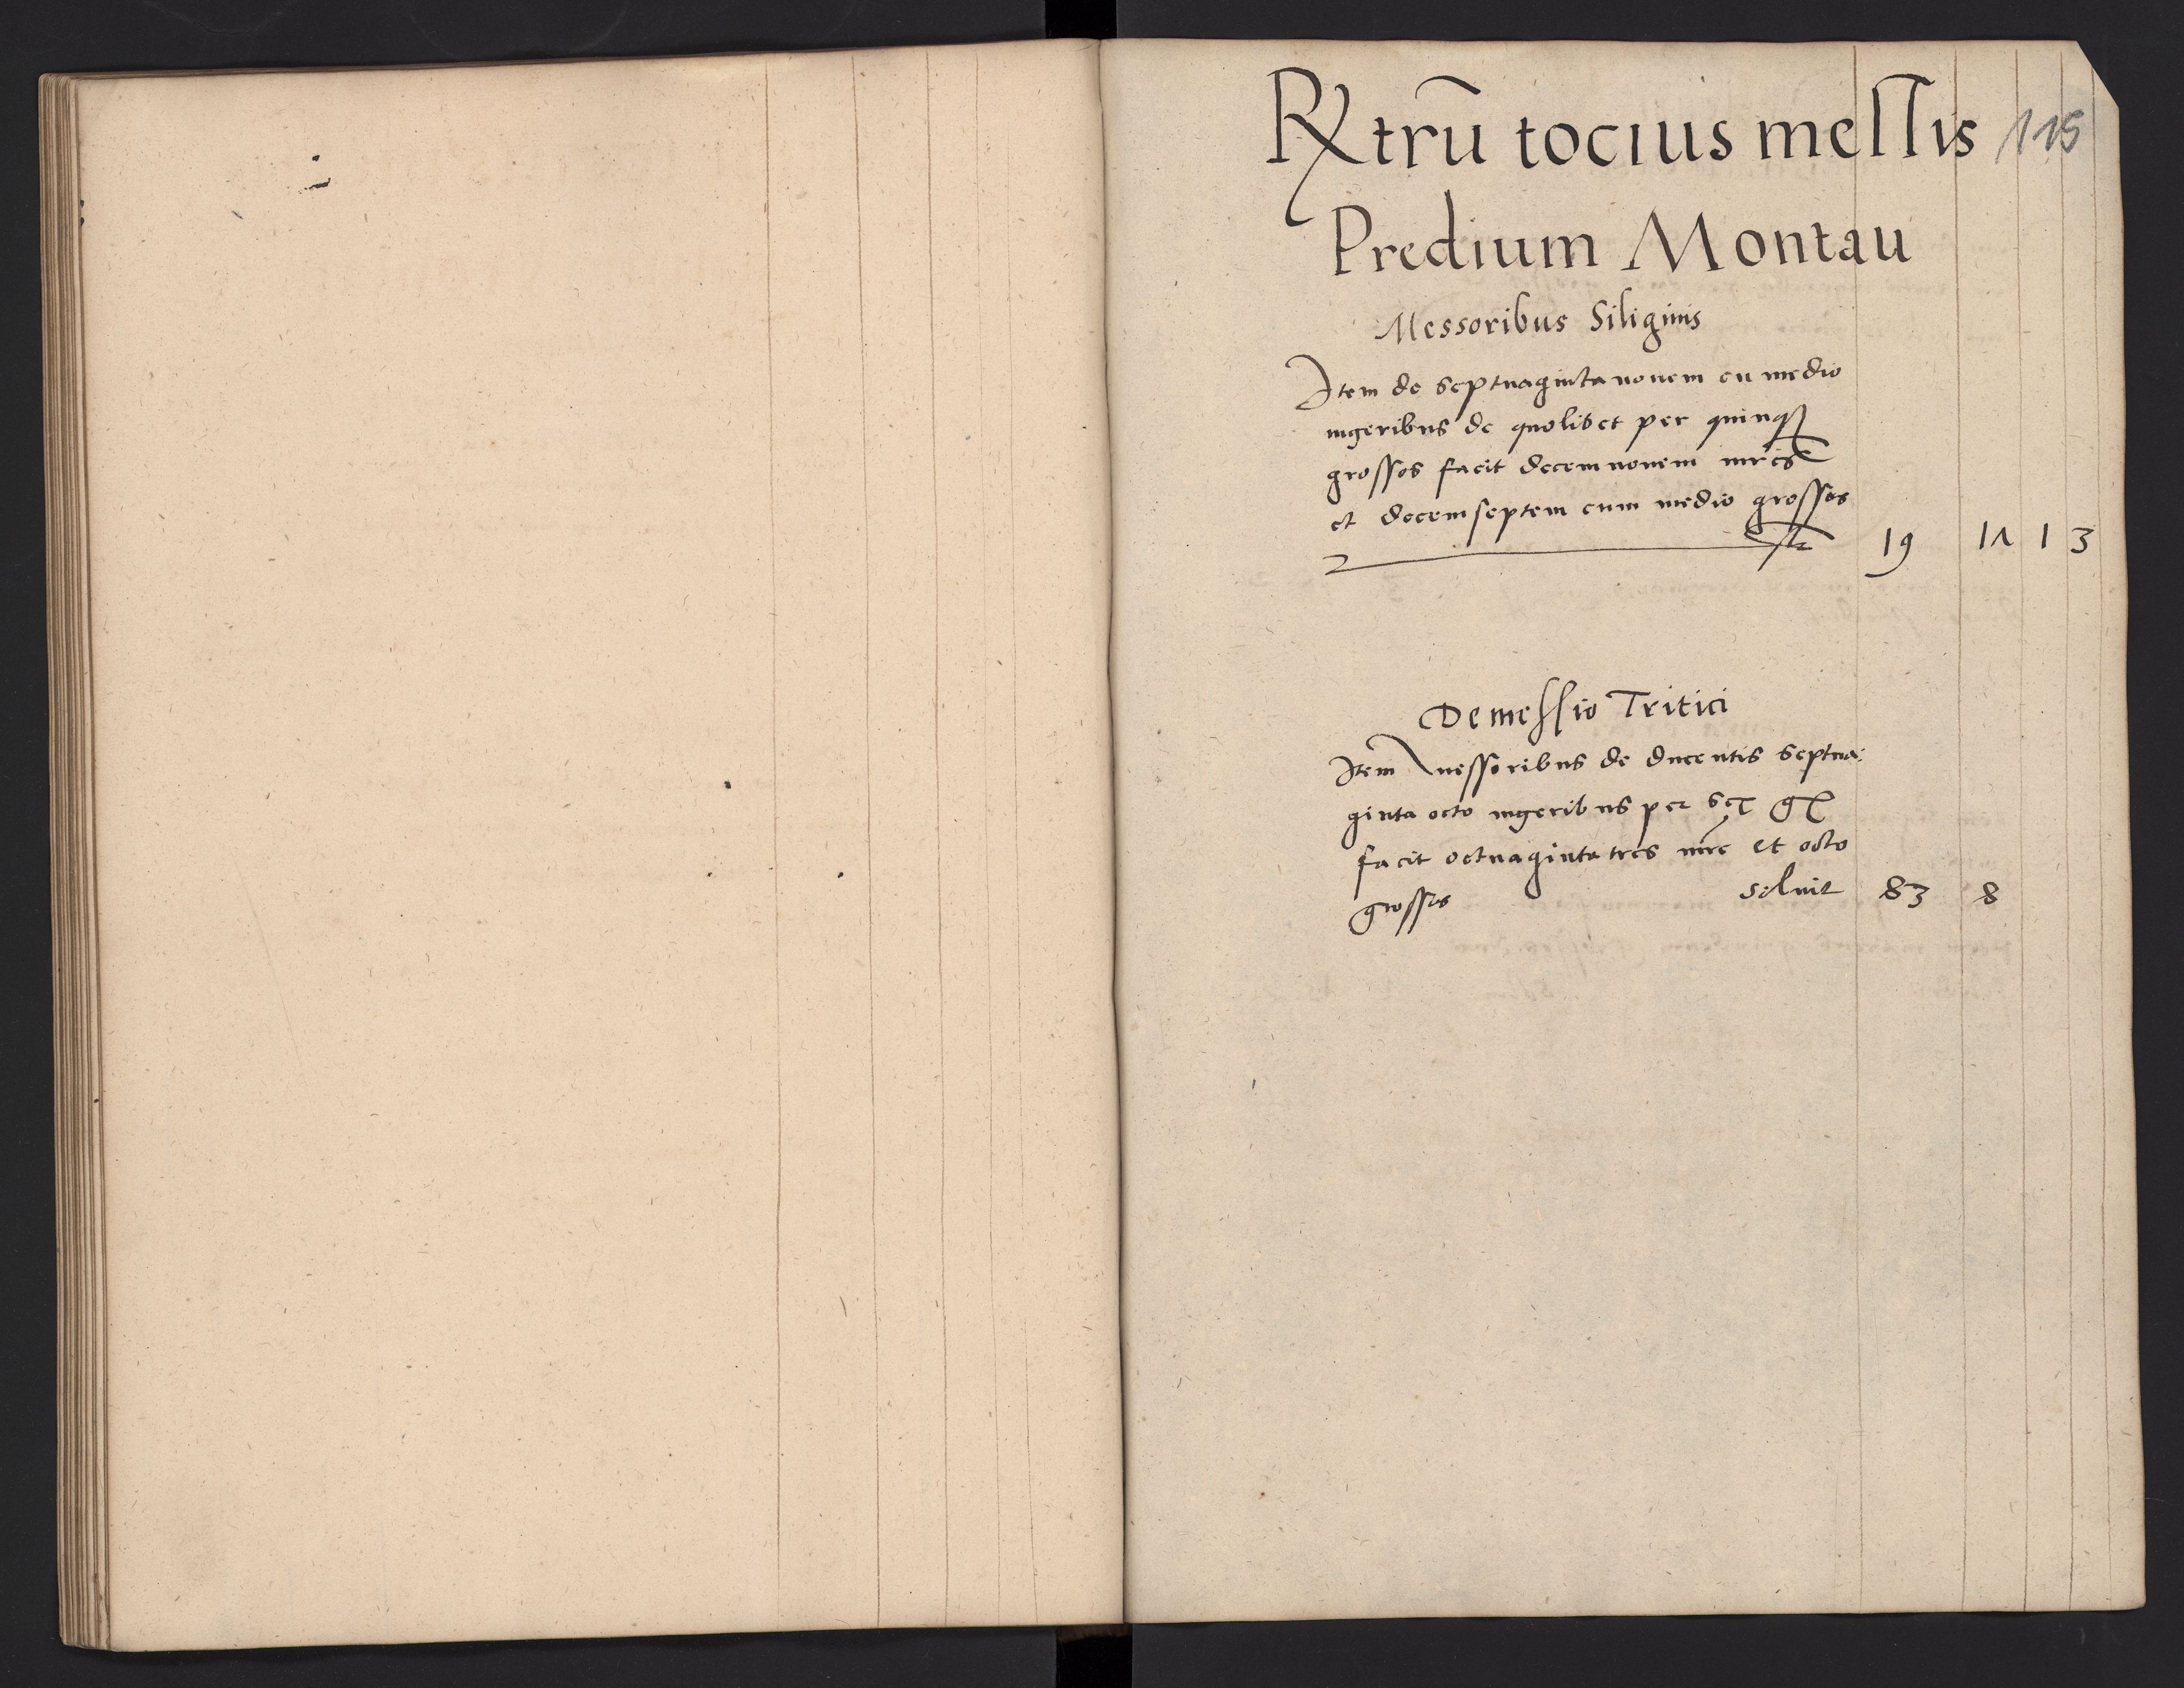 Rxtrũ tocius messis 115
Predium Montau
Messoribus Siliginis
Item de septuaginta novem cũ medio
iugeribus de quolibet per quinqȝ
grossos facit decem novem mrcs
et decem septem cum medio grossos
19 11 1 3
Demessio Tritici
Item messoribus de ducentis septua:
ginta octo iugeribus per sex gr
facit octuaginta tres mrc et octo
grossos solvit 83 8